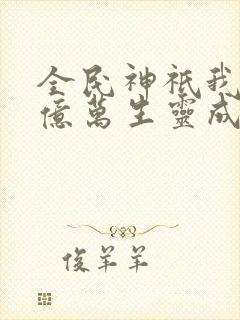 全民神祗我
億萬生靈成
俊羊羊